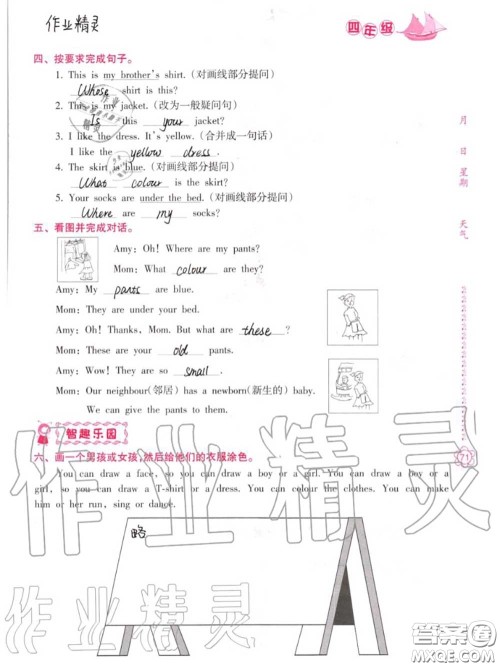 作业精灵
四年级
四、按要求完成句子。
1. This is my brother's shirt. (对画线部分提问)
Whose shirt is this?
2. This is my jacket. (改为一般疑问句)
Is this your jacket?
3. I like the dress. It's yellow. (合并成一句话)
I like the yellow dress.
4. The skirt is blue. (对画线部分提问)
What colour is the skirt?
5. Your socks are under the bed. (对画线部分提问)
Where are my socks?
五、看图并完成对话。
Amy: Oh! Where are my pants?
Mom: What colour are they?
Amy: My pants are blue.
Mom: They are under your bed.
Amy: Oh! Thanks, Mom. But what are these?
Mom: These are your old pants.
Amy: Wow! They are so small.
Mom: Our neighbour(邻居) has a newborn(新生的) baby.
We can give the pants to them.
智趣乐园
六、画一个男孩或女孩,然后给他们的衣服涂色。
You can draw a face, so you can draw a boy or a girl. You can draw a boy or a
girl, so you can draw a T-shirt or a dress. You can colour the clothes. You can make
him or her run, sing or dance.
略
月
日
星期
天气
71
作业精灵
作业精灵
答案圈
MXQE.COM